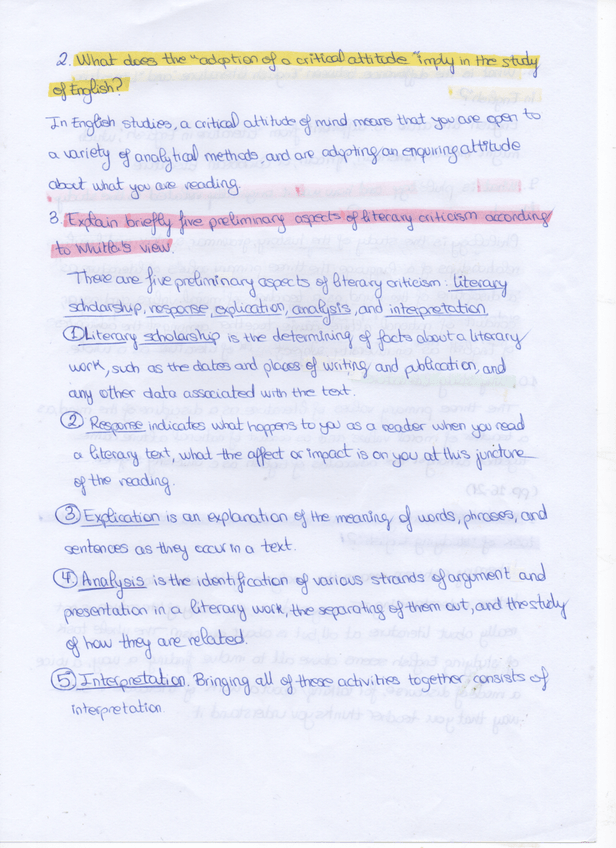 2. What does the "adoption of a critical attitude" imply in the study
of English?
In English studies, a critical attitude of mind means that you are open to
a variety of analytical methods, and are adopting an enquiring attitude
about what you are reading.
3. Explain briefly five preliminary aspects of literary criticism according
to
view.
There are five preliminary aspects of literary criticism: literary
scholarship, response, explication, analysis, and interpretation.
① Literary scholarship is the determining of facts about a literary
work, such as the dates and places of writing and publication, and
any other data associated with the text.
② Response indicates what happens to you as a reader when you read
a literary text, what the affect or impact is on you at this juncture
of the reading.
③ Explication is an explanation of the meaning of words, phrases, and
sentences as they occur in a text.
④ Analysis is the identification of various strands of argument and
presentation in a literary work, the separating of them out, and the study
of how they are related.
⑤ Interpretation. Bringing all of these activities together consists of
interpretation.